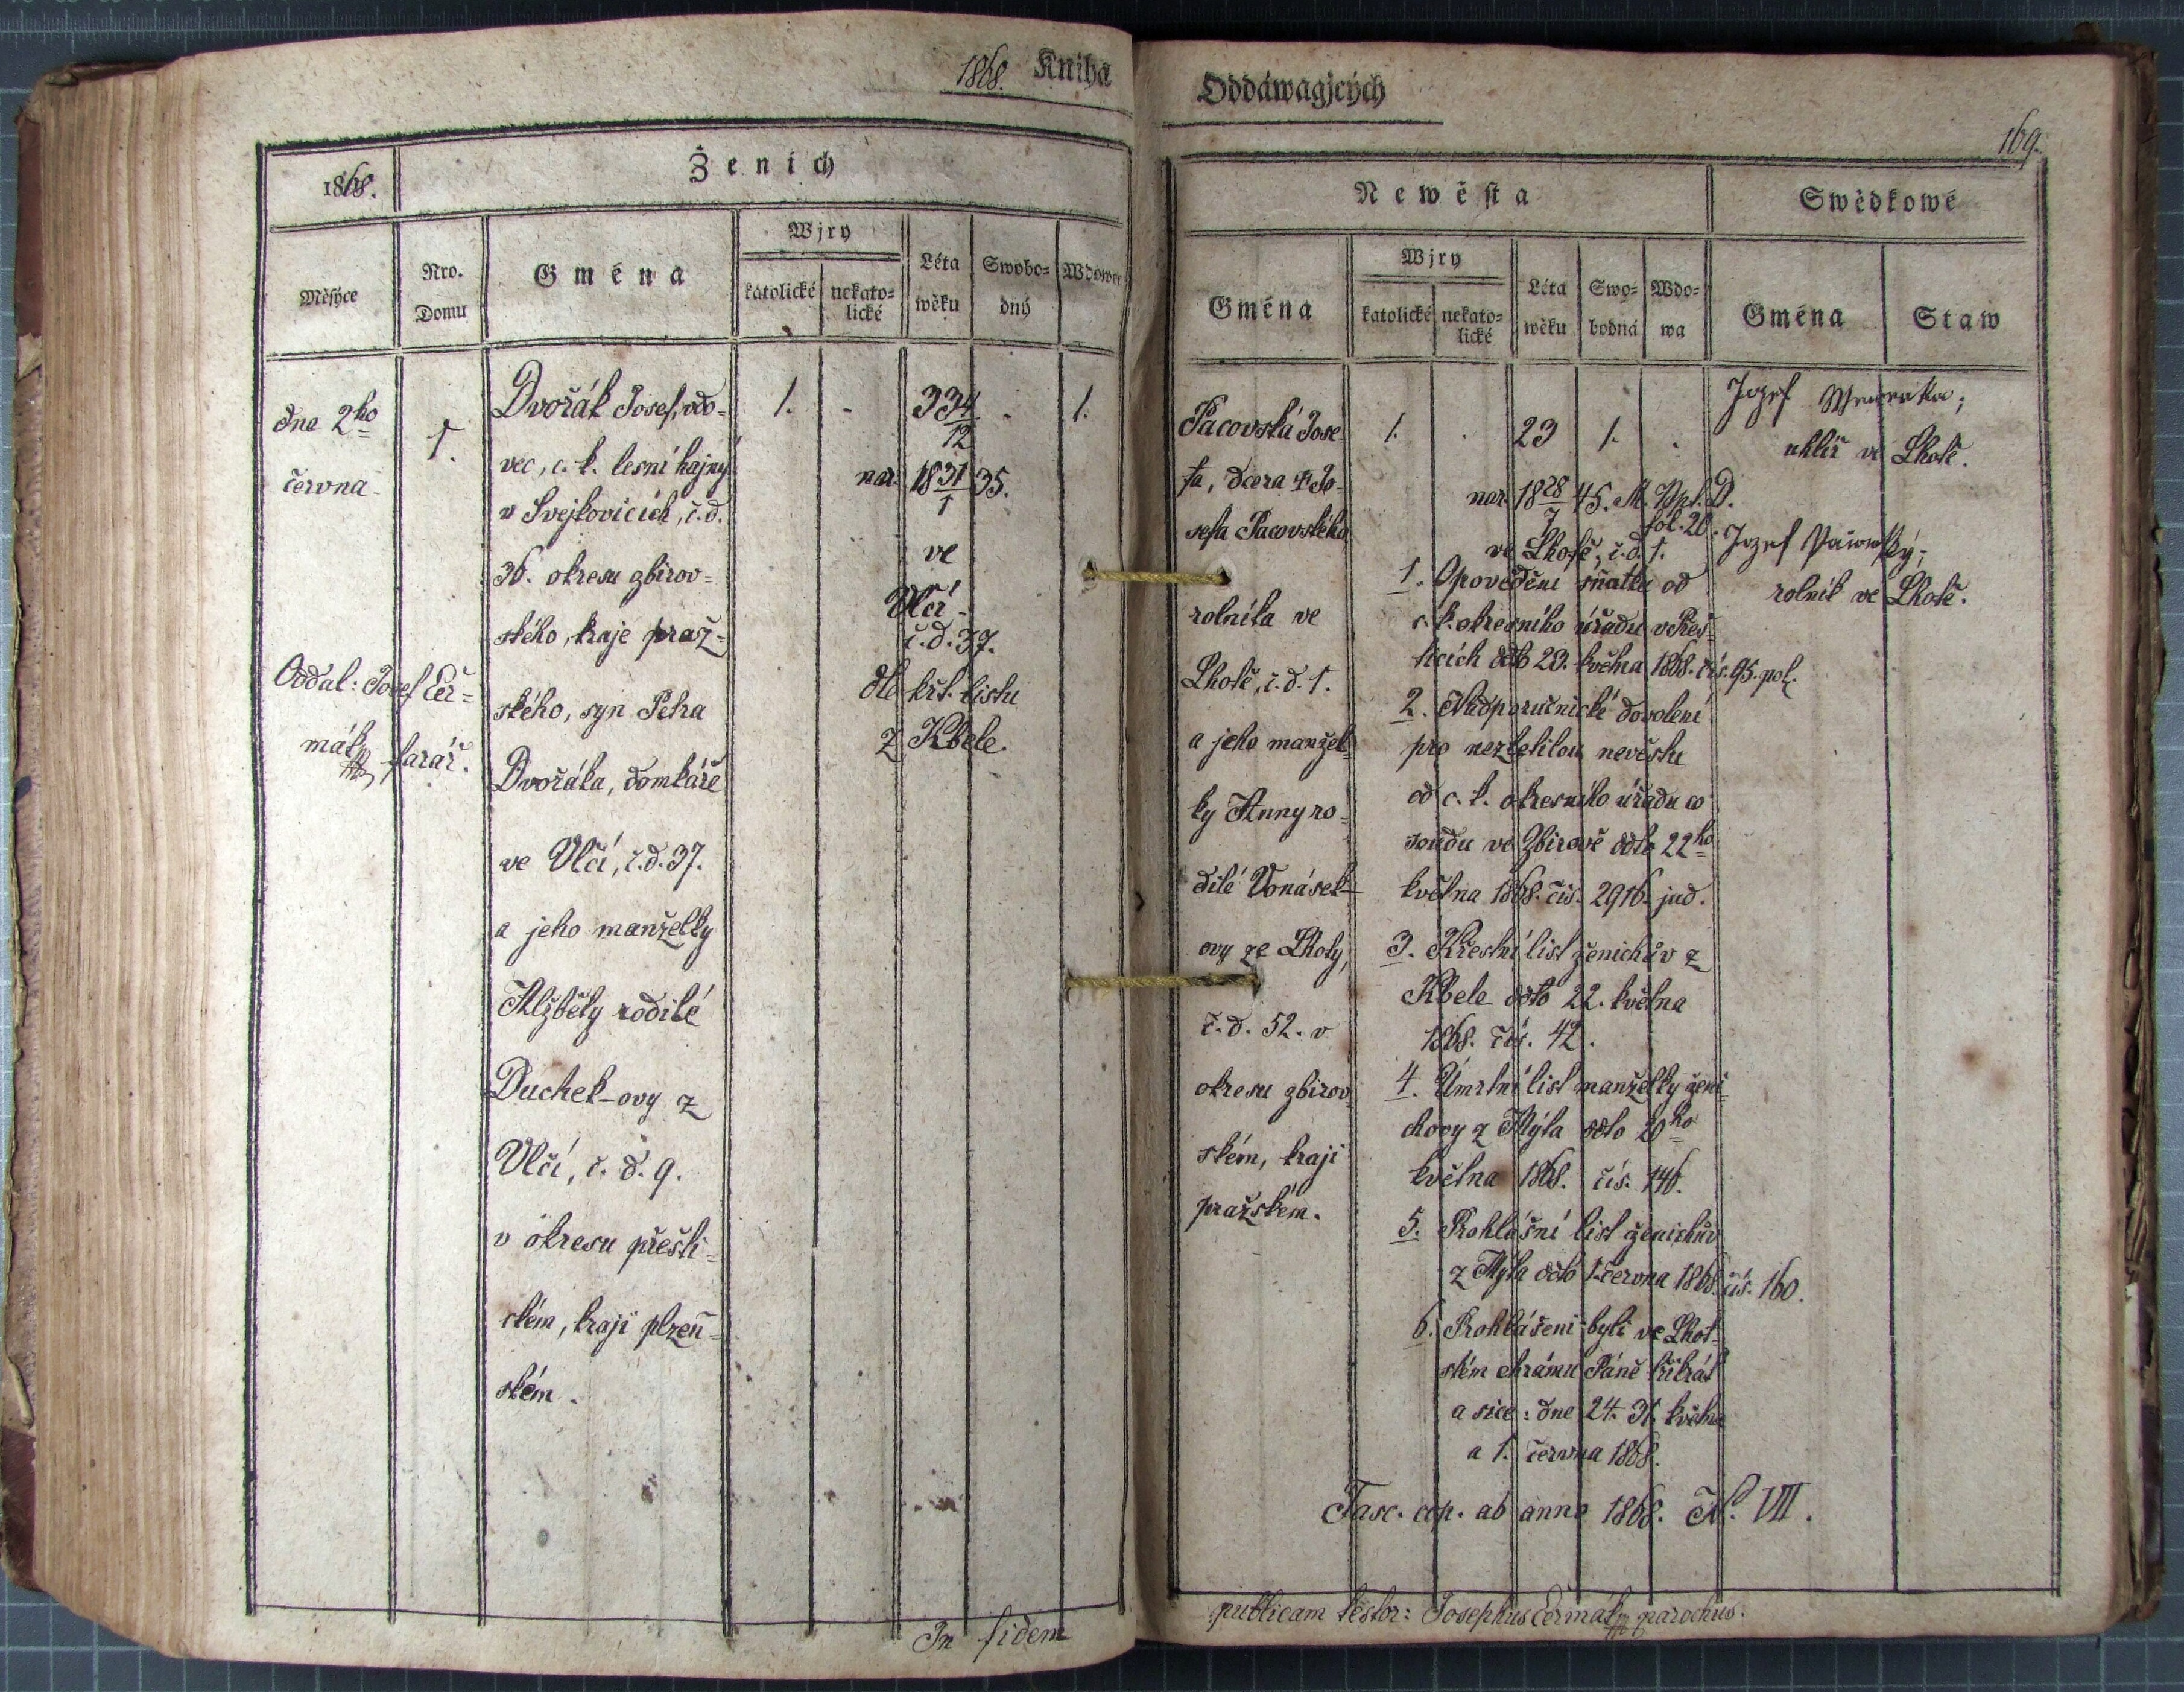 1868. Kniha
1868.
Ženich
Měsýce
Nro.
Domu
Gména
Wjry
katolické
nekato=
lické
Léta
wěku
Swobo=
dný
Wdowec
dne 2ho
června
1.
Oddal: Josef Čer=
mák, farář.
Dvořák Josef, vdo=
vec, c. k. lesní hajný
v Svejkovicích, č. d.
36. okresu zbirov=
ského, kraje praž=
ského, syn Petra
Dvořáka, domkáře
ve Vlčí, č. d. 37.
a jeho manželky
Alžběty rodilé
Duchek-ovy z
Vlčí, č. d. 9.
v okresu přešti=
ckém, kraji plzeň=
ském.
1. - 33 4/12 . 1.
nar. 18 31/1 35.
ve
Vlčí
č. d. 37.
dle křt. listu
z Kbele.
In fidem
Oddáwagjcých
169.
Newěsta
Swědkowé
Gména
Wjry
katolické
nekato=
lické
Léta
wěku
Swo=
bodná
Wdo=
wa
Gména
Staw
Pacovská Jose=
fa, dcera † Jo=
sefa Pacovského
rolníka ve
Lhotě, č. d. 1.
a jeho manžel=
ky Anny ro=
dilé Vonásek-
ovy ze Lhoty,
č. d. 52. v
okresu zbirov=
ském, kraji
pražském.
1. . 23 1. .
nar. 18 28/7 45. M.
fol. 20.
ve Lhotě, č. d. 1.
1. Opovědění sňatku od
c. k. okresního úřadu v Přeš=
ticích ddto 23. května 1868. čís. 95. pol.
2. Nadporučnické dovolení
pro nezletilou nevěstu
od c. k. okresního úřadu co
soudu ve Zbirově ddto 22ho
května 1868. čís. 2916. jud.
3. Křestní list ženichův z
Kbele ddto 22. května
1868. čís. 42.
4. Úmrtní list manželky ženi=
chovy z Mýta ddto 20ho
května 1868. čís. 146.
5. Prohlášní list ženichův
z Mýta ddto 1. června 1868. čís. 160.
6. Prohlášeni byli ve Lhot=
ském chrámu Páně třikrát
a sice: dne 24. 31. května
a 1. června 1868.
Fasc. cop. ab anno 1868. N. VII.
Jozef
uhlíř ve Lhotě.
Jozef Pacowský;
rolník ve Lhotě.
publicam testor: Josephus Čermák parochus.